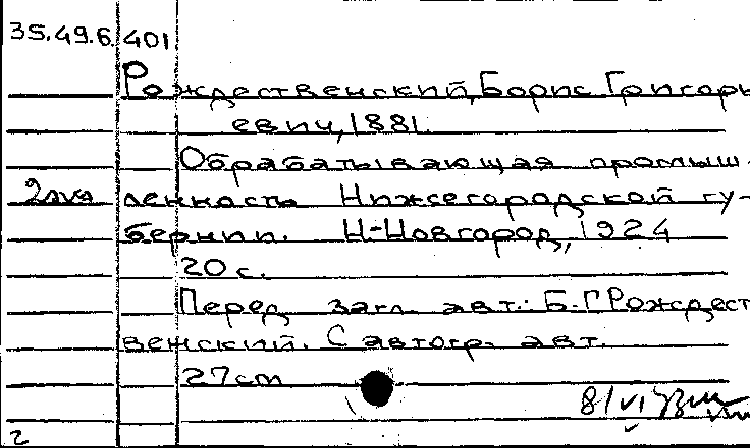 35.49.6.401
Рождественский, Борис Григорь
евич, 1881.
Обрабатывающая промыш-
2 экз ленность Нижегородской гу-
бернии. Н-Новгород, 1924
20 с.
Перед загл. авт.: Б.Г Рождест
венский. С автогр. авт.
27cm
8/VI
2